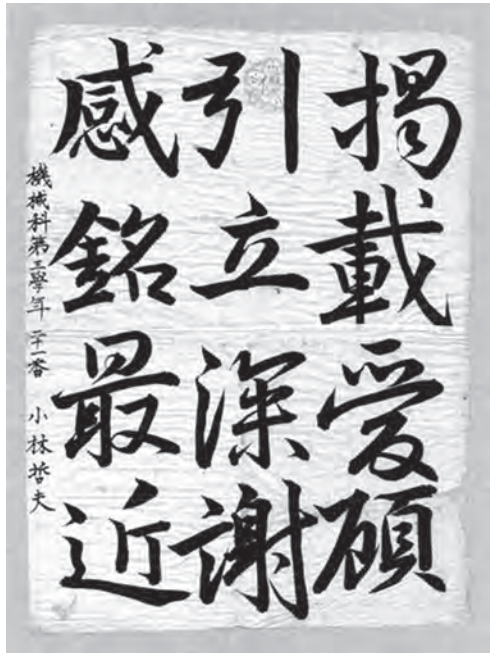 掲載愛顧
引立深謝
感銘最近
機械科第三學年 二十一番 小林哲夫